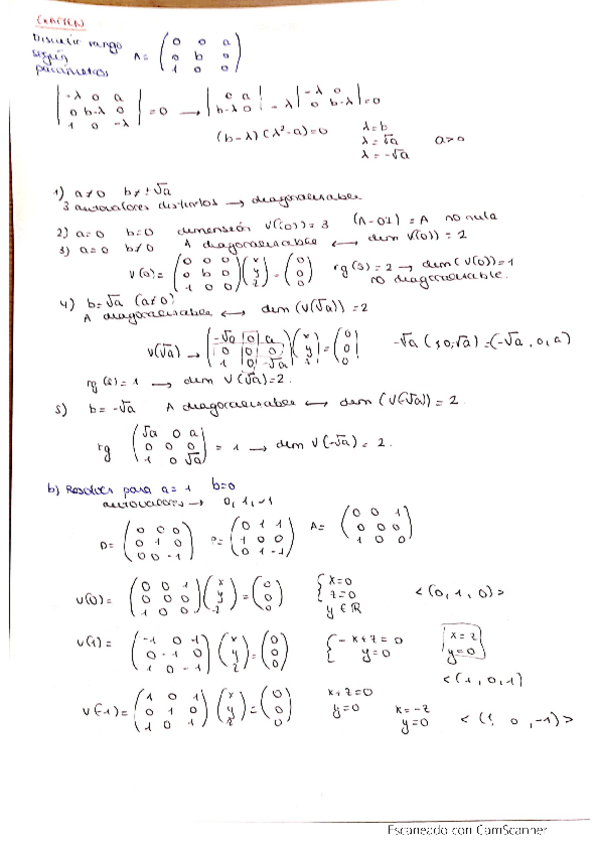 EXAMEN
Discutir rango según parámetros A = (0 0 a; 0 b 0; 1 0 0)
|-λ 0 a; 0 b-λ 0; 1 0 -λ| = 0 → |0 a; b-λ 0| - λ |-λ 0; 0 b-λ| = 0
(b-λ)(λ²-a)=0 λ=b λ=√a λ=-√a a>0
1) a≠0 b≠±√a
3 autovalores distintos → diagonalizable
2) a=0 b=0 dimensión V(0) = 3 (A-0I) = A no nula
3) a=0 b≠0 A diagonalizable ⟷ dim V(0)) = 2
V(0) = (0 0 0; 0 b 0; 1 0 0)(x; y; z) = (0; 0; 0) rg(S) = 2 → dim(V(0)) = 1
no diagonalizable.
4) b=√a (a≠0)
A diagonalizable ⟷ dim (V(√a)) = 2
V(√a) → (-√a 0 a; 0 0 0; 1 0 -√a)(x; y; z) = (0; 0; 0) -√a (1, 0, -√a) = (-√a, 0, a)
rg(S) = 1 → dim V(√a) = 2.
5) b = -√a A diagonalizable ⟷ dim (V(-√a)) = 2
rg (√a 0 a; 0 0 0; 1 0 √a) = 1 → dim V(-√a) = 2.
b) Resolver para a=1 b=0
autovalores → 0, 1, -1
D = (0 0 0; 0 1 0; 0 0 -1) P = (0 1 1; 1 0 0; 0 1 -1) A = (0 0 1; 0 0 0; 1 0 0)
V(0) = (0 0 1; 0 0 0; 1 0 0)(x; y; z) = (0; 0; 0) { x=0 z=0 y∈ℝ <(0, 1, 0)>
V(1) = (-1 0 1; 0 -1 0; 1 0 -1)(x; y; z) = (0; 0; 0) { -x+z=0 y=0 x=z y=0
<(1, 0, 1)
V(-1) = (1 0 1; 0 1 0; 1 0 1)(x; y; z) = (0; 0; 0) x+z=0 y=0 x=-z y=0 <(1, 0, -1)>
Escaneado con CamScanner